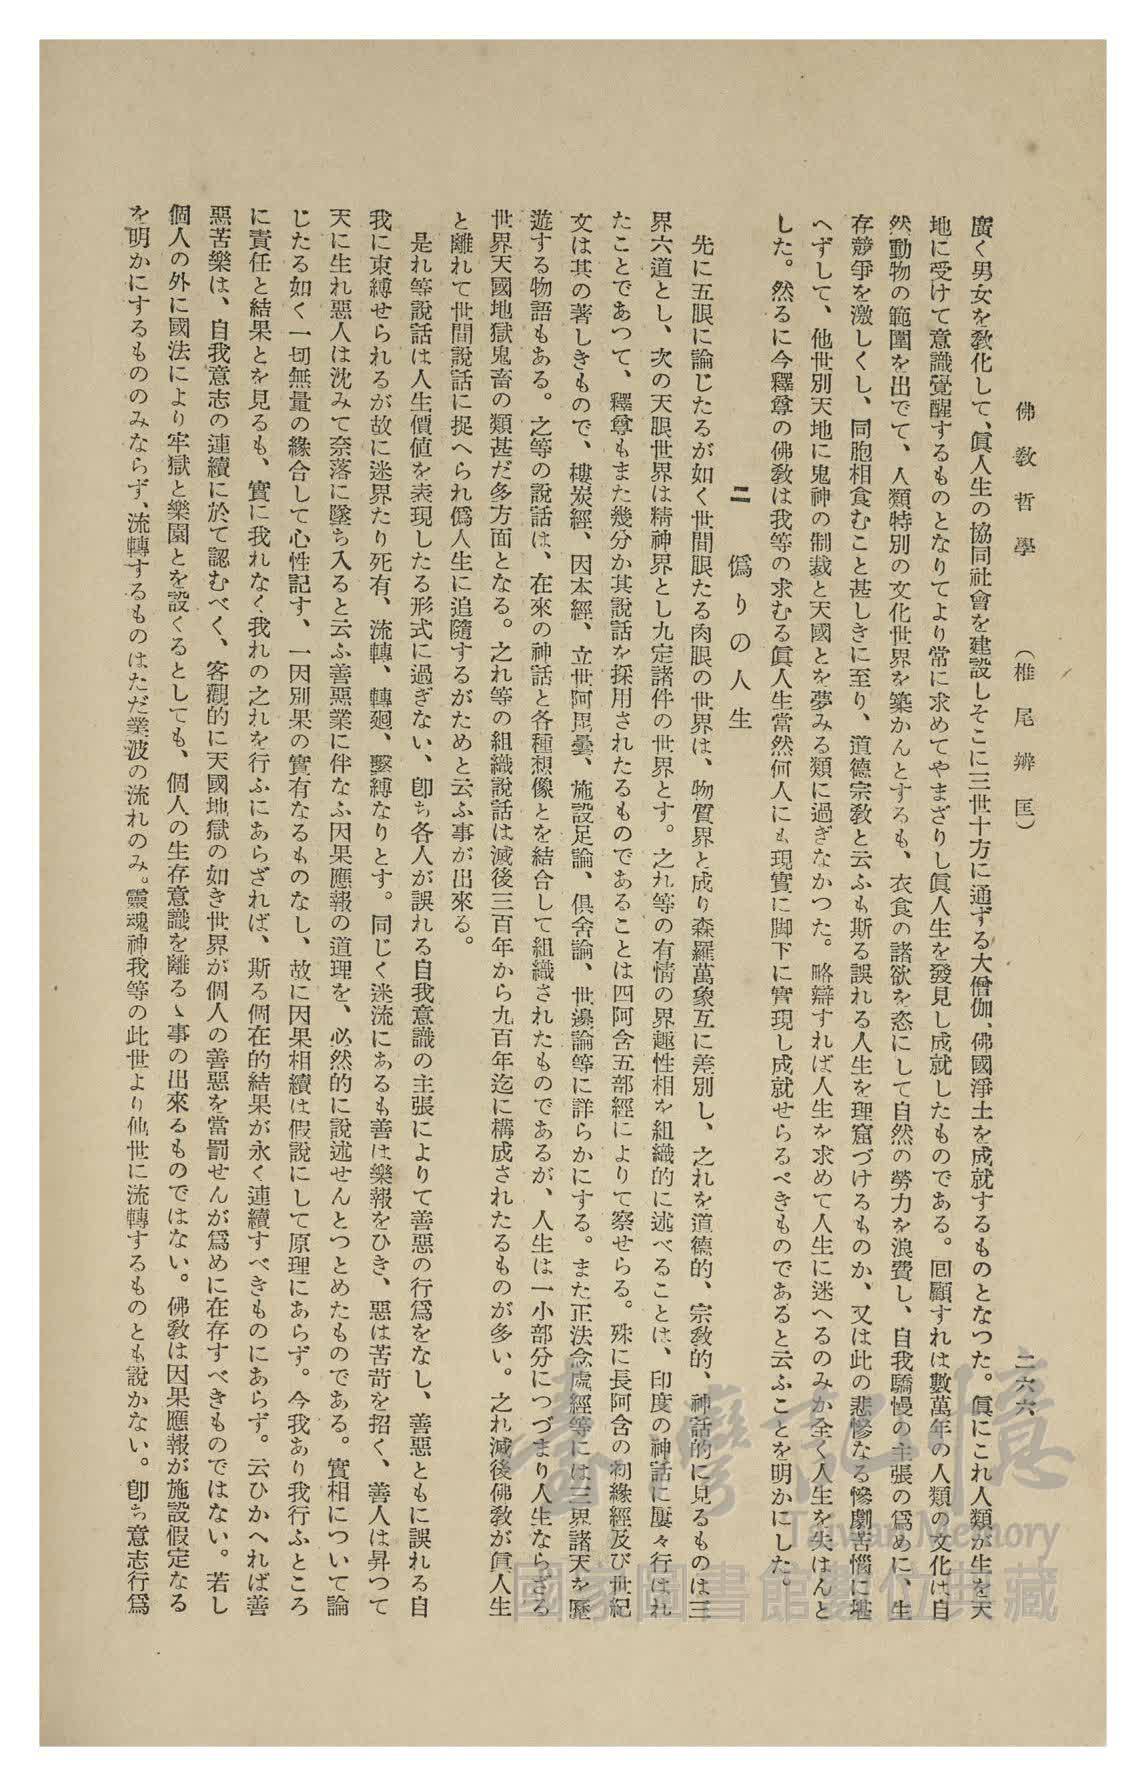 佛教哲學　（椎尾辨匡）　二六六
廣く男女を敎化して、眞人生の協同社會を建設しそこに三世十方に通ずる大僧伽、佛國淨土を成就するものとなつた。眞にこれ人類が生を天
地に受けて意識覺醒するものとなりてより常に求めてやまざりし眞人生を發見し成就したものである。回顧すれは數萬年の人類の文化は、自
然動物の範圍を出でて、人類特別の文化世界を築かんとするも、衣食の諸欲を恣にして自然の勞力を浪費し、自我驕慢の主張の爲めに、生
存競爭を激しくし、同胞相食むこと甚しきに至り、道德宗敎と云ふも斯る誤れる人生を理窟づけるものか、又は此の悲慘なる慘劇苦惱に堪
へずして、他世別天地に鬼神の制裁と天國とを夢みる類に過ぎなかつた。略辯すれば人生を求めて人生に迷へるのみか全く人生を失はんと
した。然るに今釋尊の佛敎は我等の求むる眞人生當然何人にも現實に脚下に實現し成就せらるべきものであると云ふことを明かにした。
二　僞りの人生
先に五眼に論じたるが如く世間眼たる肉眼の世界は、物質界と成り森羅萬象互に差別し、之れを道德的、宗敎的、神話的に見るものは三
界六道とし、次の天眼世界は精神界とし九定諸件の世界とす。之れ等の有情の界趣性相を組織的に述べることは、印度の神話に屢々行はれ
たことであつて、釋尊もまた幾分か其說話を採用されたるものであることは四阿含五部經によりて察せらる。殊に長阿含の初緣經及び世紀
文は其の著しきもので、樓炭經、因本經、立世阿毘曇、施設足論、俱舍論、世邊論等に詳らかにする。また正法念處經等には三界諸天を歷
遊する物語もある。之等の說話は、在來の神話と各種想像とを結合して組織されたものであるが、人生は一小部分につづまり人生ならざる
世界天國地獄鬼畜の類甚だ多方面となる。之れ等の組織說話は滅後三百年から九百年迄に構成されたるものが多い。之れ滅後佛敎が眞人生
と離れて世間說話に捉へられ僞人生に追隨するがためと云ふ事が出來る。
是れ等說話は人生價値を表現したる形式に過ぎない、卽ち各人が誤れる自我意識の主張によりて善惡の行爲をなし、善惡ともに誤れる自
我に束縛せられるが故に迷界たり死有、流轉、轉廻、繫縛なりとす。同じく迷流にあるも善は樂報をひき、惡は苦苛を招く、善人は昇つて
天に生れ惡人は沈みて奈落に墜ち入ると云ふ善惡業に伴なふ因果應報の道理を、必然的に說述せんとつとめたものである。實相について論
じたる如く一切無量の緣合して心性記す、一因別果の實有なるものなし、故に因果相續は假說にして原理にあらず。今我あり我行ふところ
に責任と結果とを見るも、實に我れなく我れの之れを行ふにあらざれば、斯る個在的結果が永く連續すべきものにあらず。云ひかへれば善
惡苦樂は、自我意志の連續に於て認むべく、客觀的に天國地獄の如き世界が個人の善惡を當罰せんが爲めに在存すべきものではない。若し
個人の外に國法により牢獄と樂園とを設くるとしても、個人の生存意識を離るゝ事の出來るものではない。佛敎は因果應報が施設假定なる
を明かにするもののみならず、流轉するものはただ業波の流れのみ。靈魂神我等の此世より他世に流轉するものとも說かない。卽ち意志行爲
臺灣記憶
Taiwan Memory
國家圖書館數位典藏